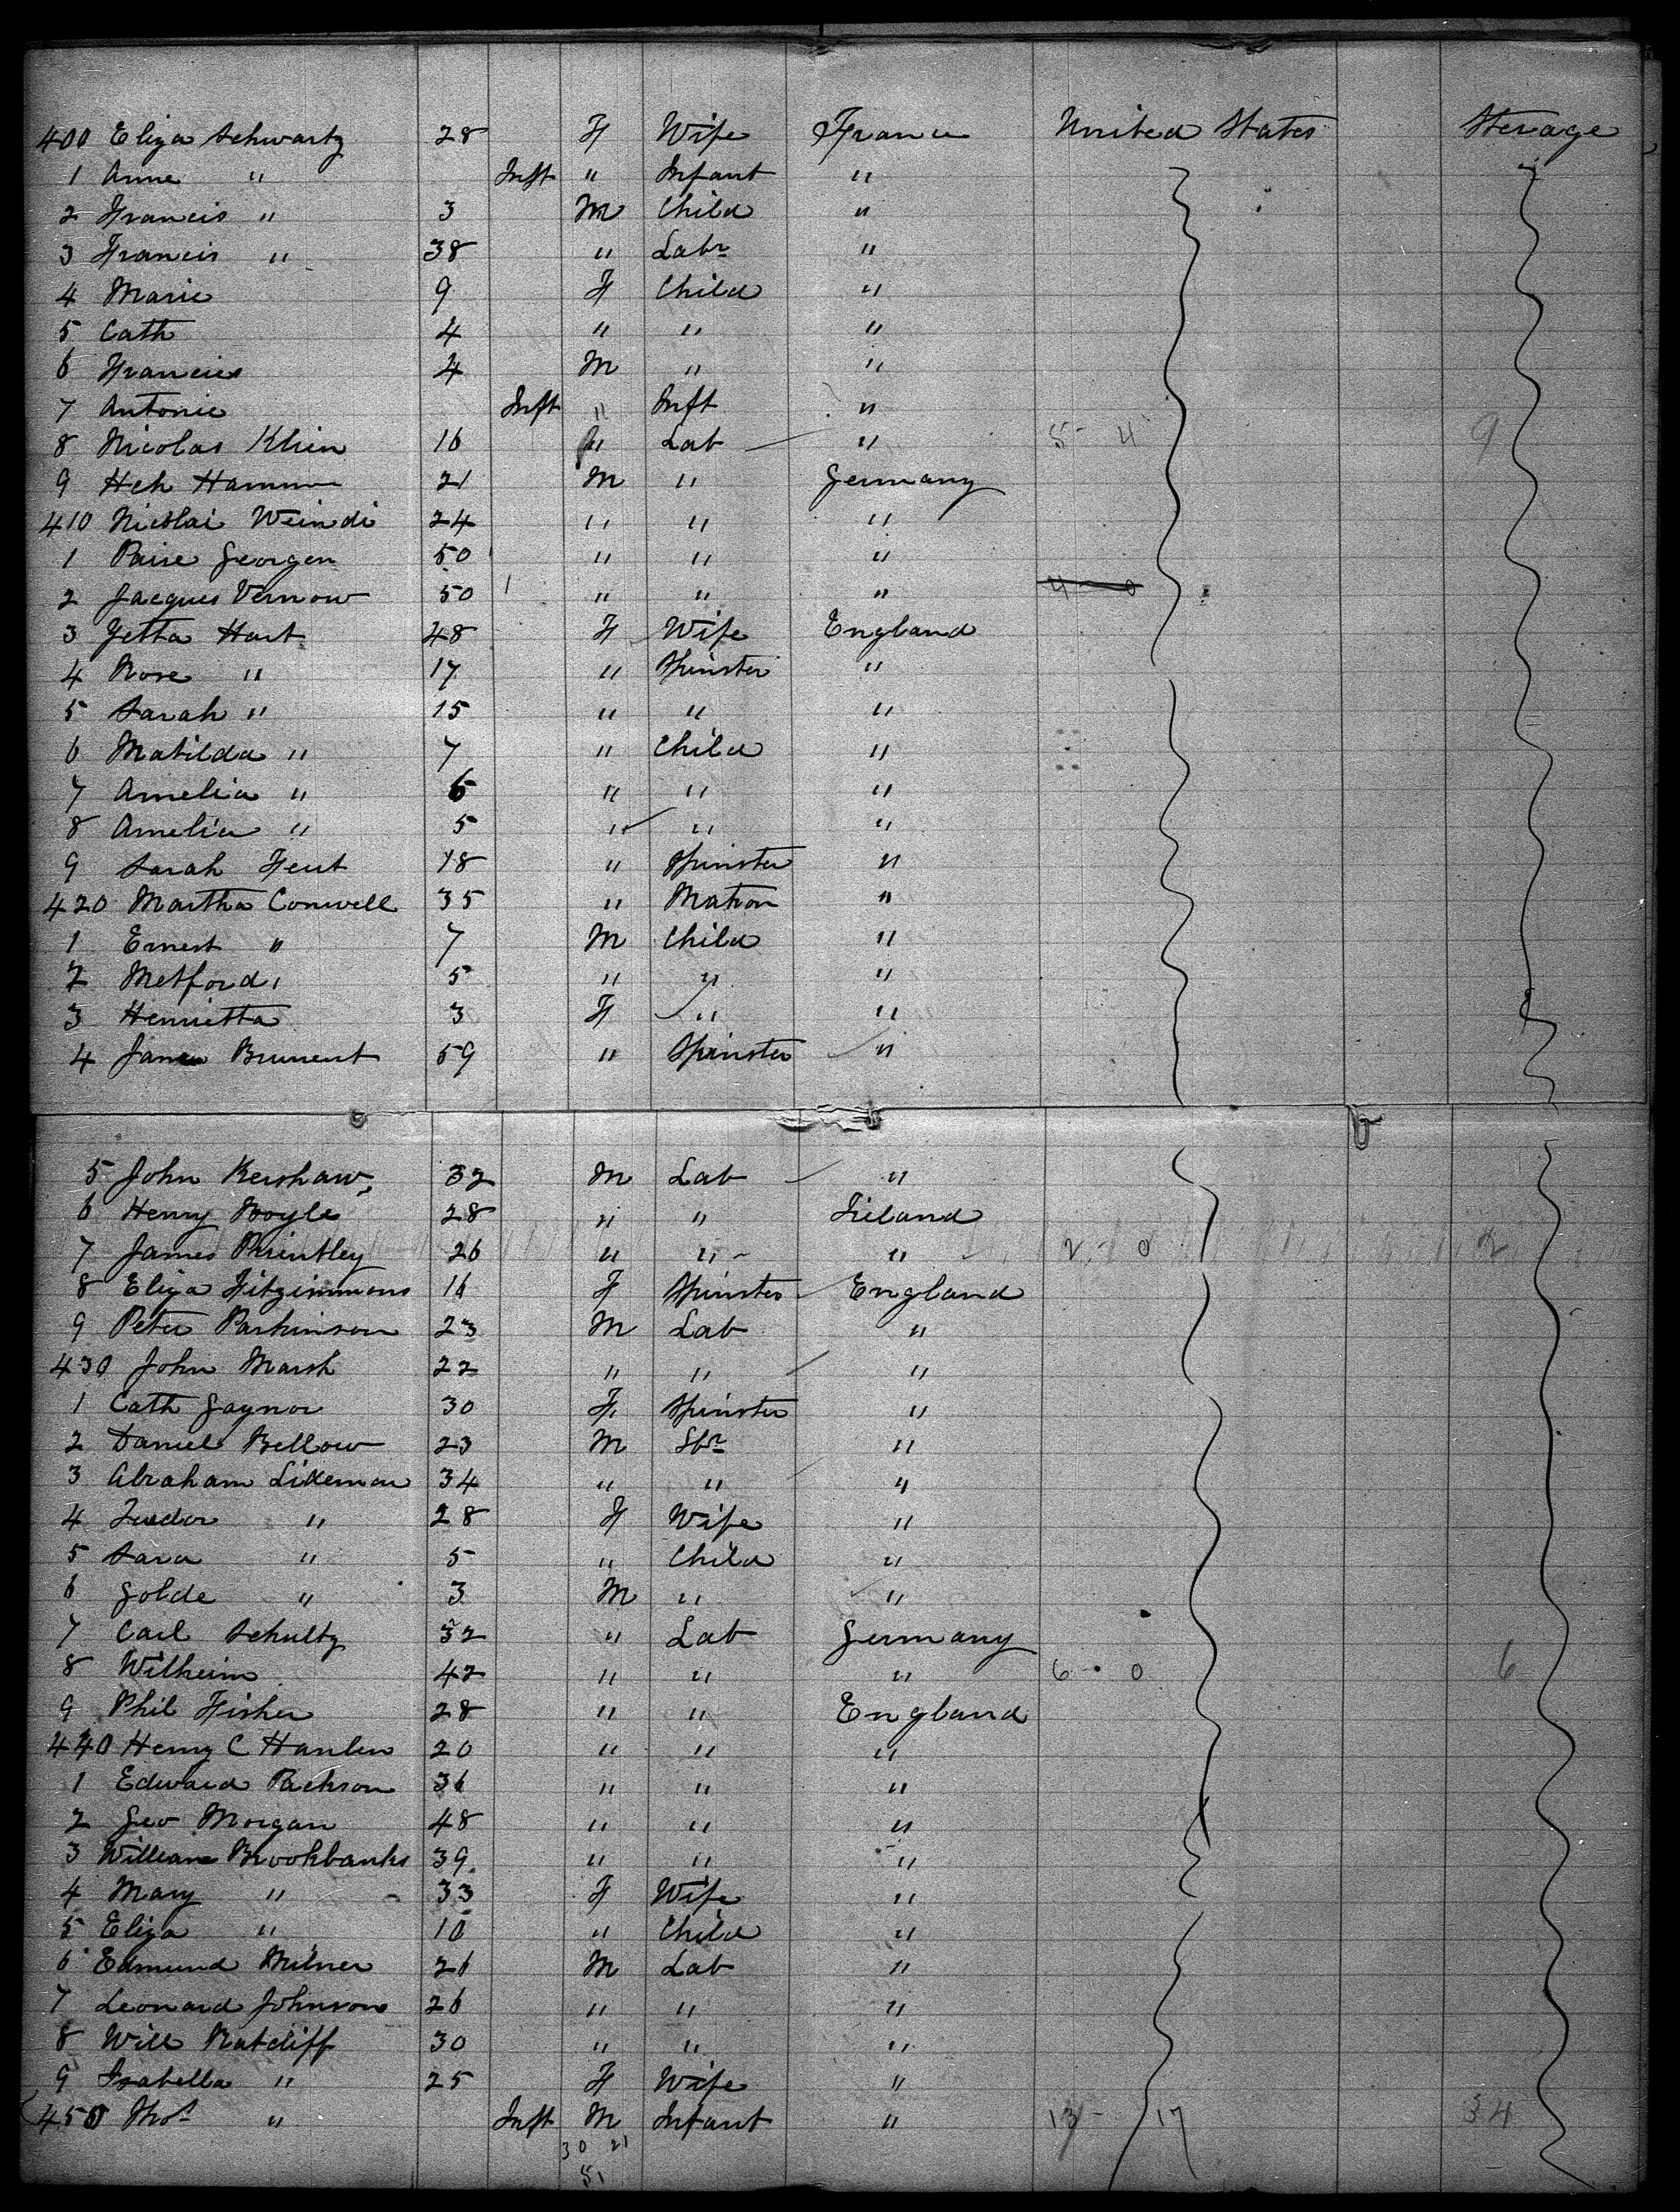 400 Eliza Schwartz 28 F Wife France United States Sterage
1 Anne " Inft " Infant "
2 Francis " 3 M Child "
3 Francis " 38 " Labr "
4 Marie 9 F Child "
5 Cath 4 " " "
6 Francies 4 M " "
7 Antonie Inft " Inft "
8 Nicolas Klien 16 " Lab " 5 - 4 9
9 Hch Hamm 21 M " Germany
410 Nicolai Weindi 24 " " "
1 Georgen 50 " " "
2 Jacques Vernow 50 " " " 4 - 0
3 Yetta Hart 48 F Wife England
4 Rose " 17 " Spinster "
5 Sarah " 15 " " "
6 Matilda " 7 " Child "
7 Amelia " 6 " " "
8 Amelia " 5 " " "
9 Sarah 18 " Spinster "
420 Martha Conwell 35 " Matron "
1 Ernest " 7 M Child "
2 Metford " 5 " " "
3 Henrietta 3 F " "
4 59 " Spinster "
5 John Kershaw 32 M Lab "
6 Henry Boyle 28 " " Ireland
7 James Printley 26 " " " 2 - 0 2
8 Eliza Fitzimmons 16 F Spinster England
9 Peter Parkinson 23 M Lab "
430 John Marsh 22 " " "
1 Cath Gaynor 30 F Spinster "
2 Daniel Bellow 23 M Lbr "
3 Abraham 34 " " "
4 " 28 F Wife "
5 Sara " 5 " Child "
6 Golde " 3 M " "
7 Carl Schultz 32 " Lab Germany
8 Wilheim 42 " " " 6 - 0 6
9 Phil Fisher 28 " " England
440 Henry C Hanlen 20 " " "
1 Edward Packson 36 " " "
2 Geo Morgan 48 " " "
3 William Brookbanks 39 " " "
4 Mary " 33 F Wife "
5 Eliza " 10 " Child "
6 Edmund Milner 26 M Lab "
7 Leonard Johnson 26 " " "
8 Will Ratcliff 30 " " "
9 Isabella " 25 F Wife "
450 Thos " Inft M Infant " 17 - 17 34
30 21
51